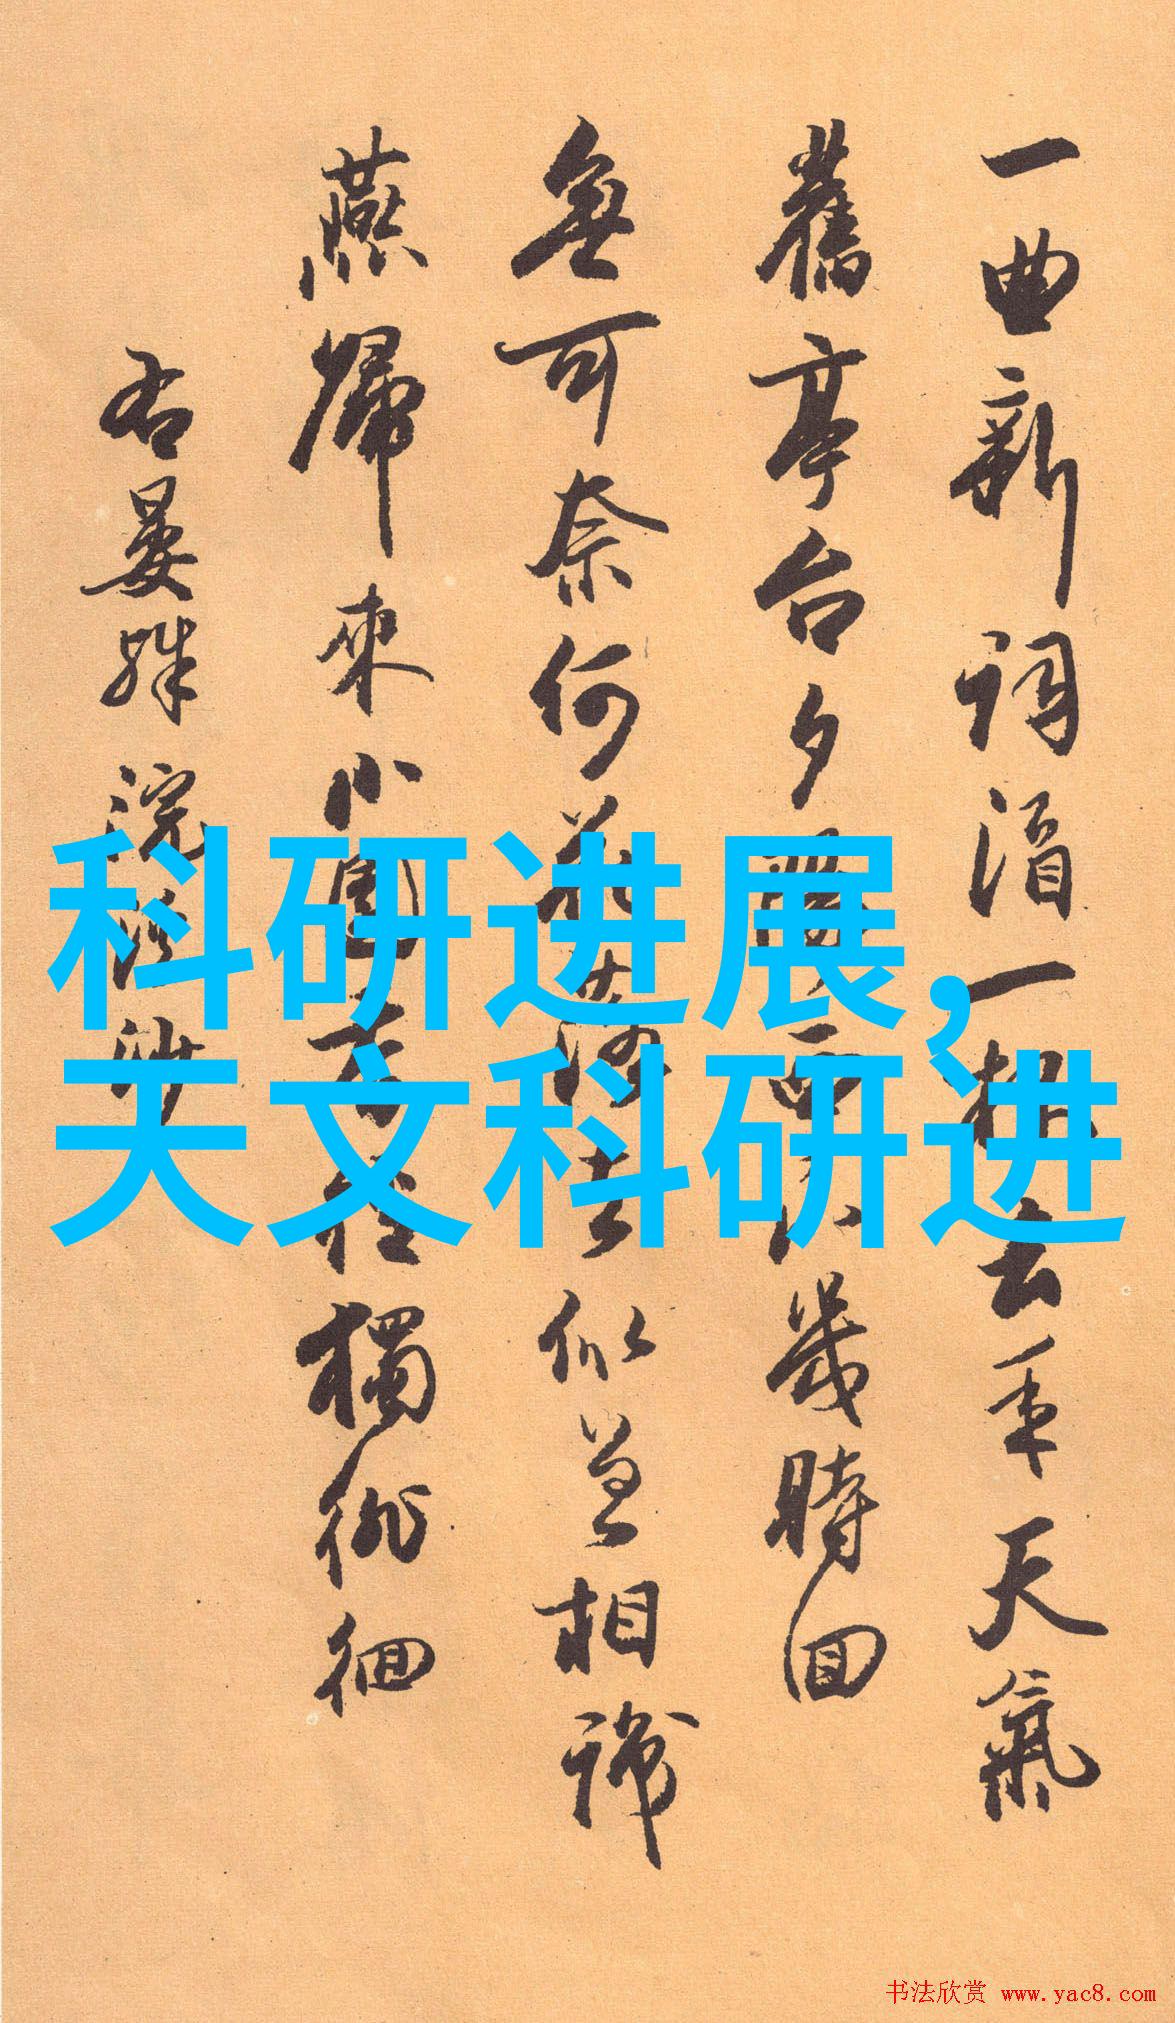 一曲新詞酒一杯去年天氣
舊亭台夕陽西下幾時回
無可奈何花落去似曾相識
燕歸來小園香徑獨徘徊
右晏殊浣溪沙
科研进展,
天文科研进
书法欣赏 www.yac8.com